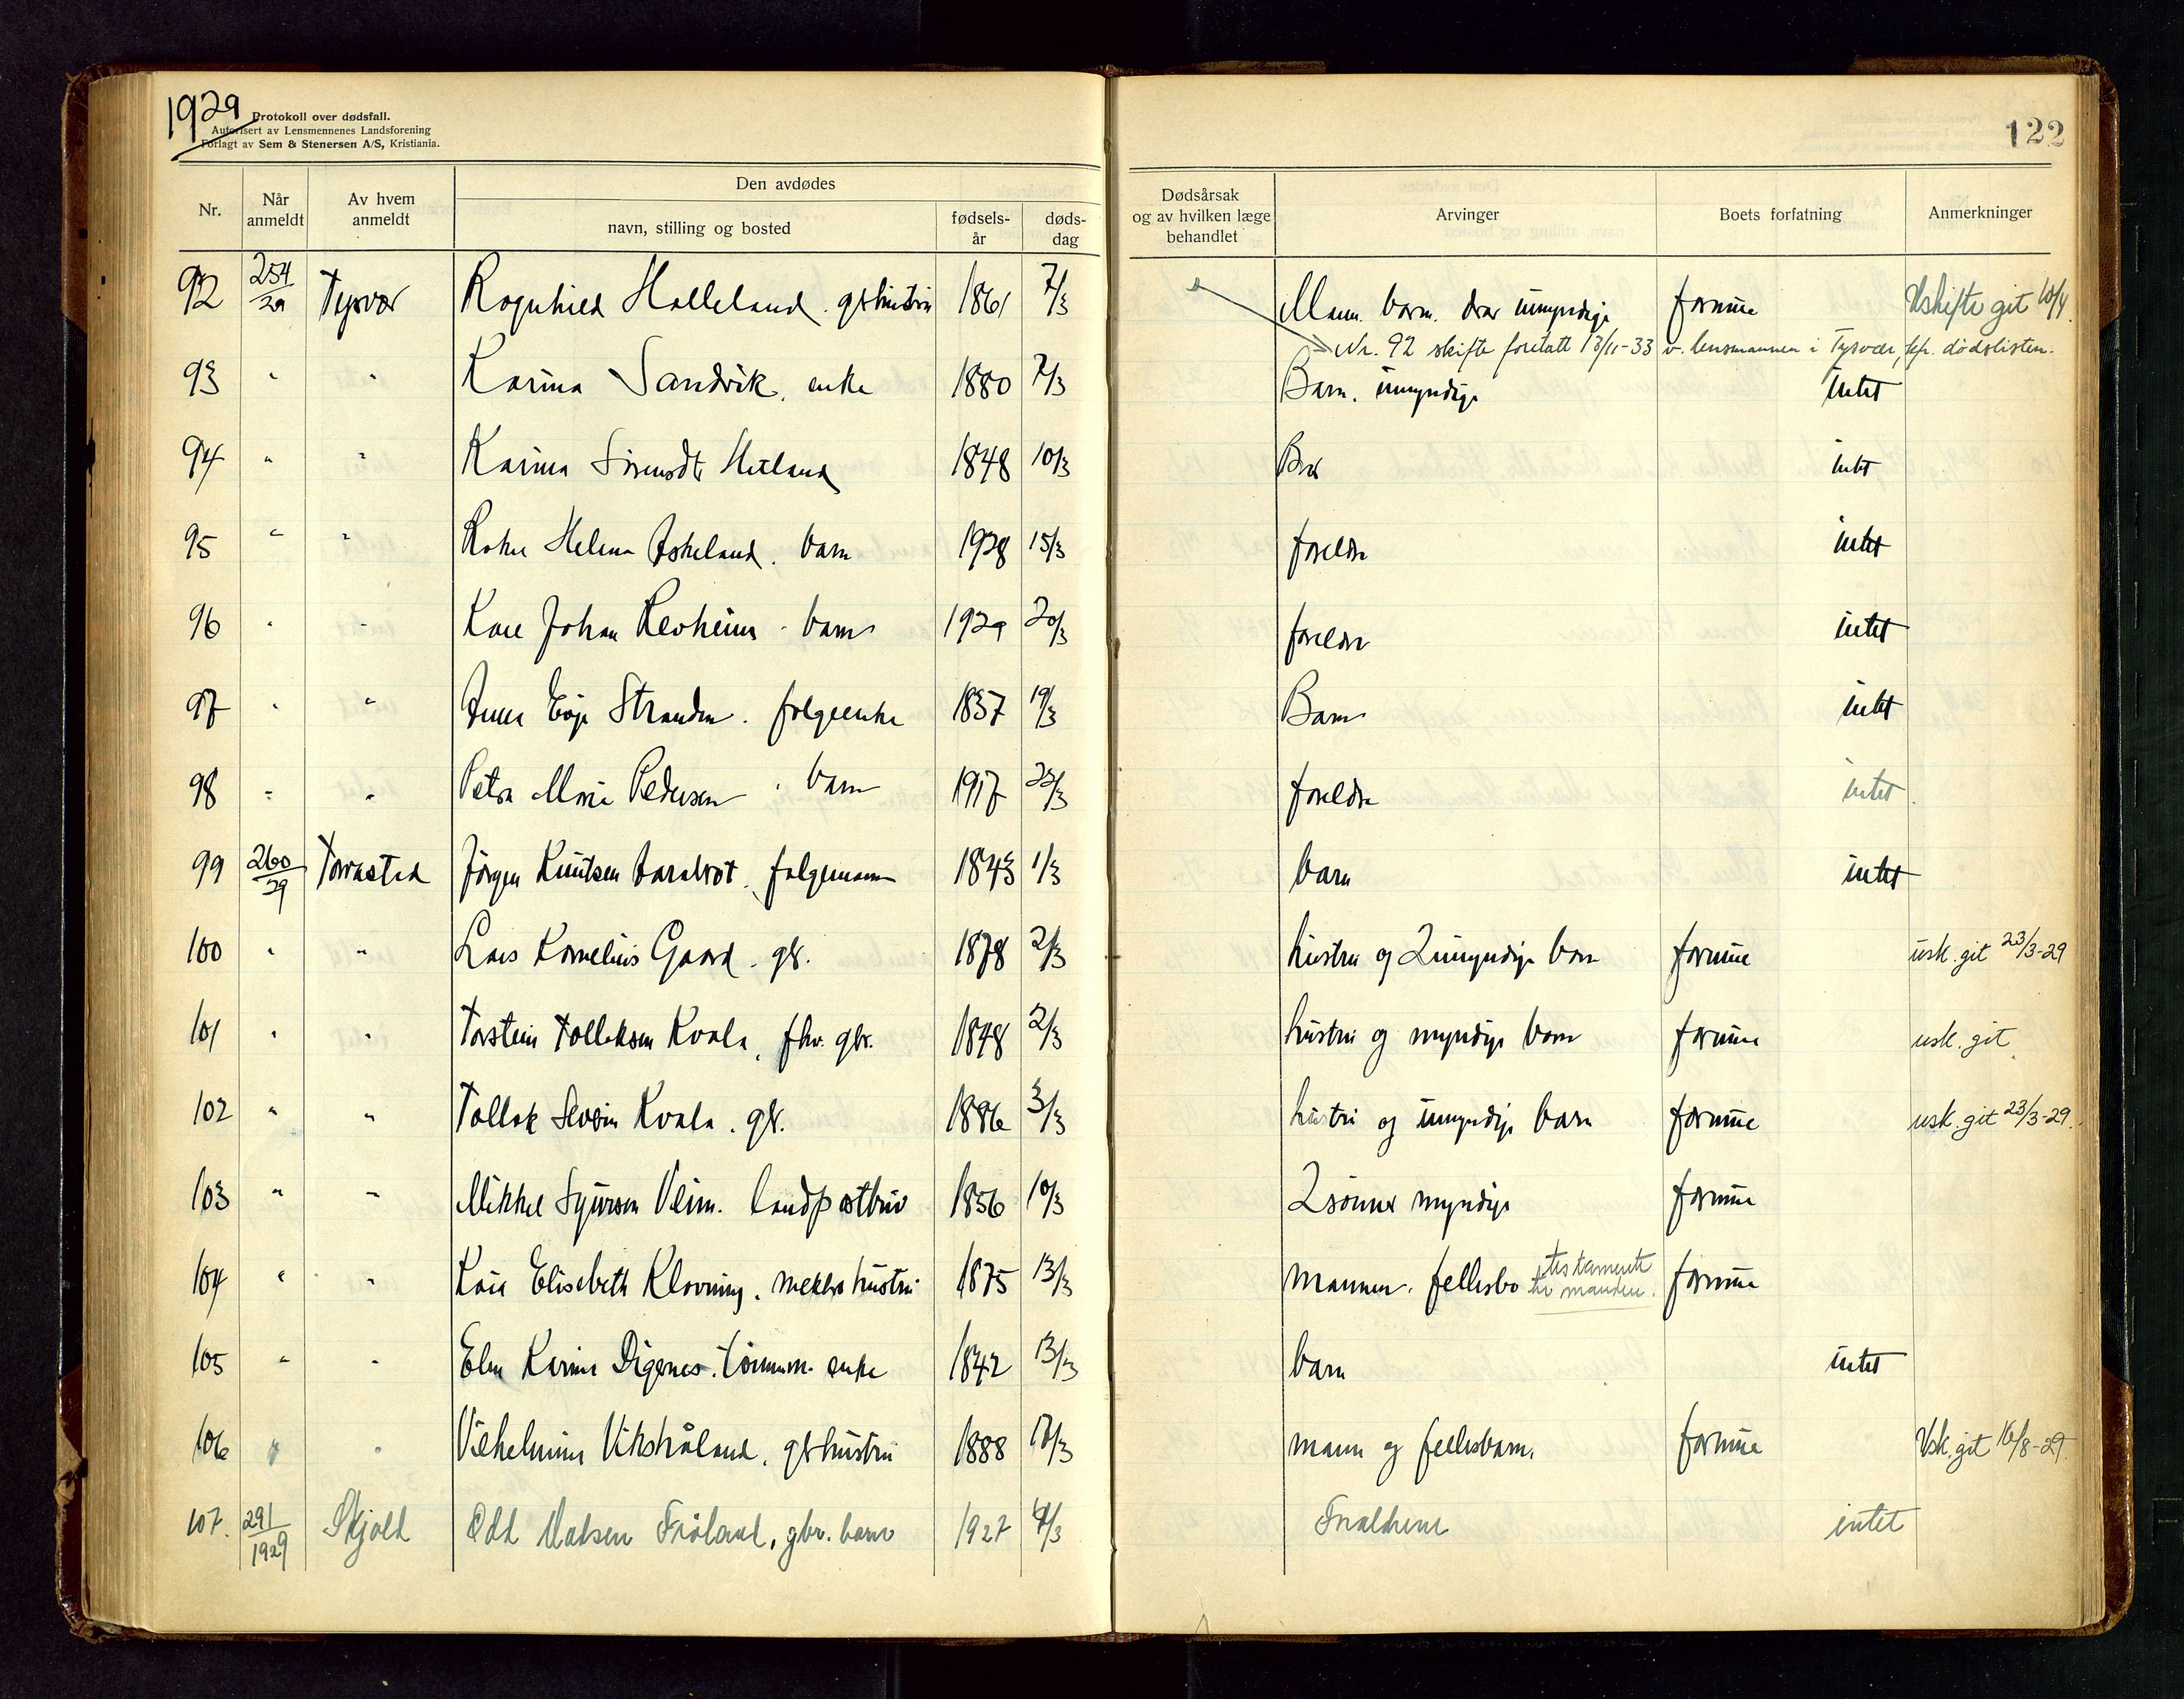 1929
Protokoll over dødsfall.
Autorisert av Lensmennenes Landsforening
Forlagt av Sem & Stenersen A/S, Kristiania.
122
Nr. Når anmeldt Av hvem anmeldt Den avdødes navn, stilling og bosted fødsels-år døds-dag Dødsårsak og av hvilken læge behandlet Arvinger Boets forfatning Anmerkninger
92 254/29 Tysvær Ragnhild Halleland. gbhustru 1861 7/3 Mann. barn. drar umyndige formue Uskifte git 10/4.
Nr. 92 skifte foretatt 13/11-33 v. lensmannen i Tysvær, jfr. dødslisten.
93 " " Karina Sandvik, enke 1880 7/3 Barn. umyndige intet
94 " " Karina Sørensdt Hetland 1848 10/3 intet
95 " " Helene Askeland. barn 1928 15/3 foreldre intet
96 " " Kare Johan Revheim. barn 1929 20/3 foreldre intet
97 " " Anna Stranden. folgeenke 1837 19/3 Barn intet
98 " " Petra Marie Pedersen. barn 1917 foreldre intet
99 260/29 Torvastad Jørgen Knutsen folgemann 1843 1/3 barn intet
100 " " Lars Kornelius Gaard. gbr. 1878 2/3 hustru og 2 umyndige barn formue usk. git 23/3-29
101 " " Torstein Tollaksen Kvala, fhv. gbr. 1848 2/3 hustru og myndige barn formue usk. git
102 " " Tollak Severin Kvala. gbr. 1886 3/3 hustru og umyndige barn formue usk. git 23/3-29.
103 " " Mikkel Sjursen Veim. landpostbud 1856 10/3 2 sønner myndige formue
104 " " Elisabeth Klovning. meklerhustru 1875 13/3 mannen. fellesbo testamente til manden. formue
105 " " Karine Digernes. enke 1842 13/3 barn intet
106 " " Vilhelmine Vikshåland. gbhustru 1888 17/3 mann og fellesbarn. formue Usk. git 16/8-29
107. 291/1929 Skjold Odd Frøland, gbr. barn 1927 4/3 Forældrene intet